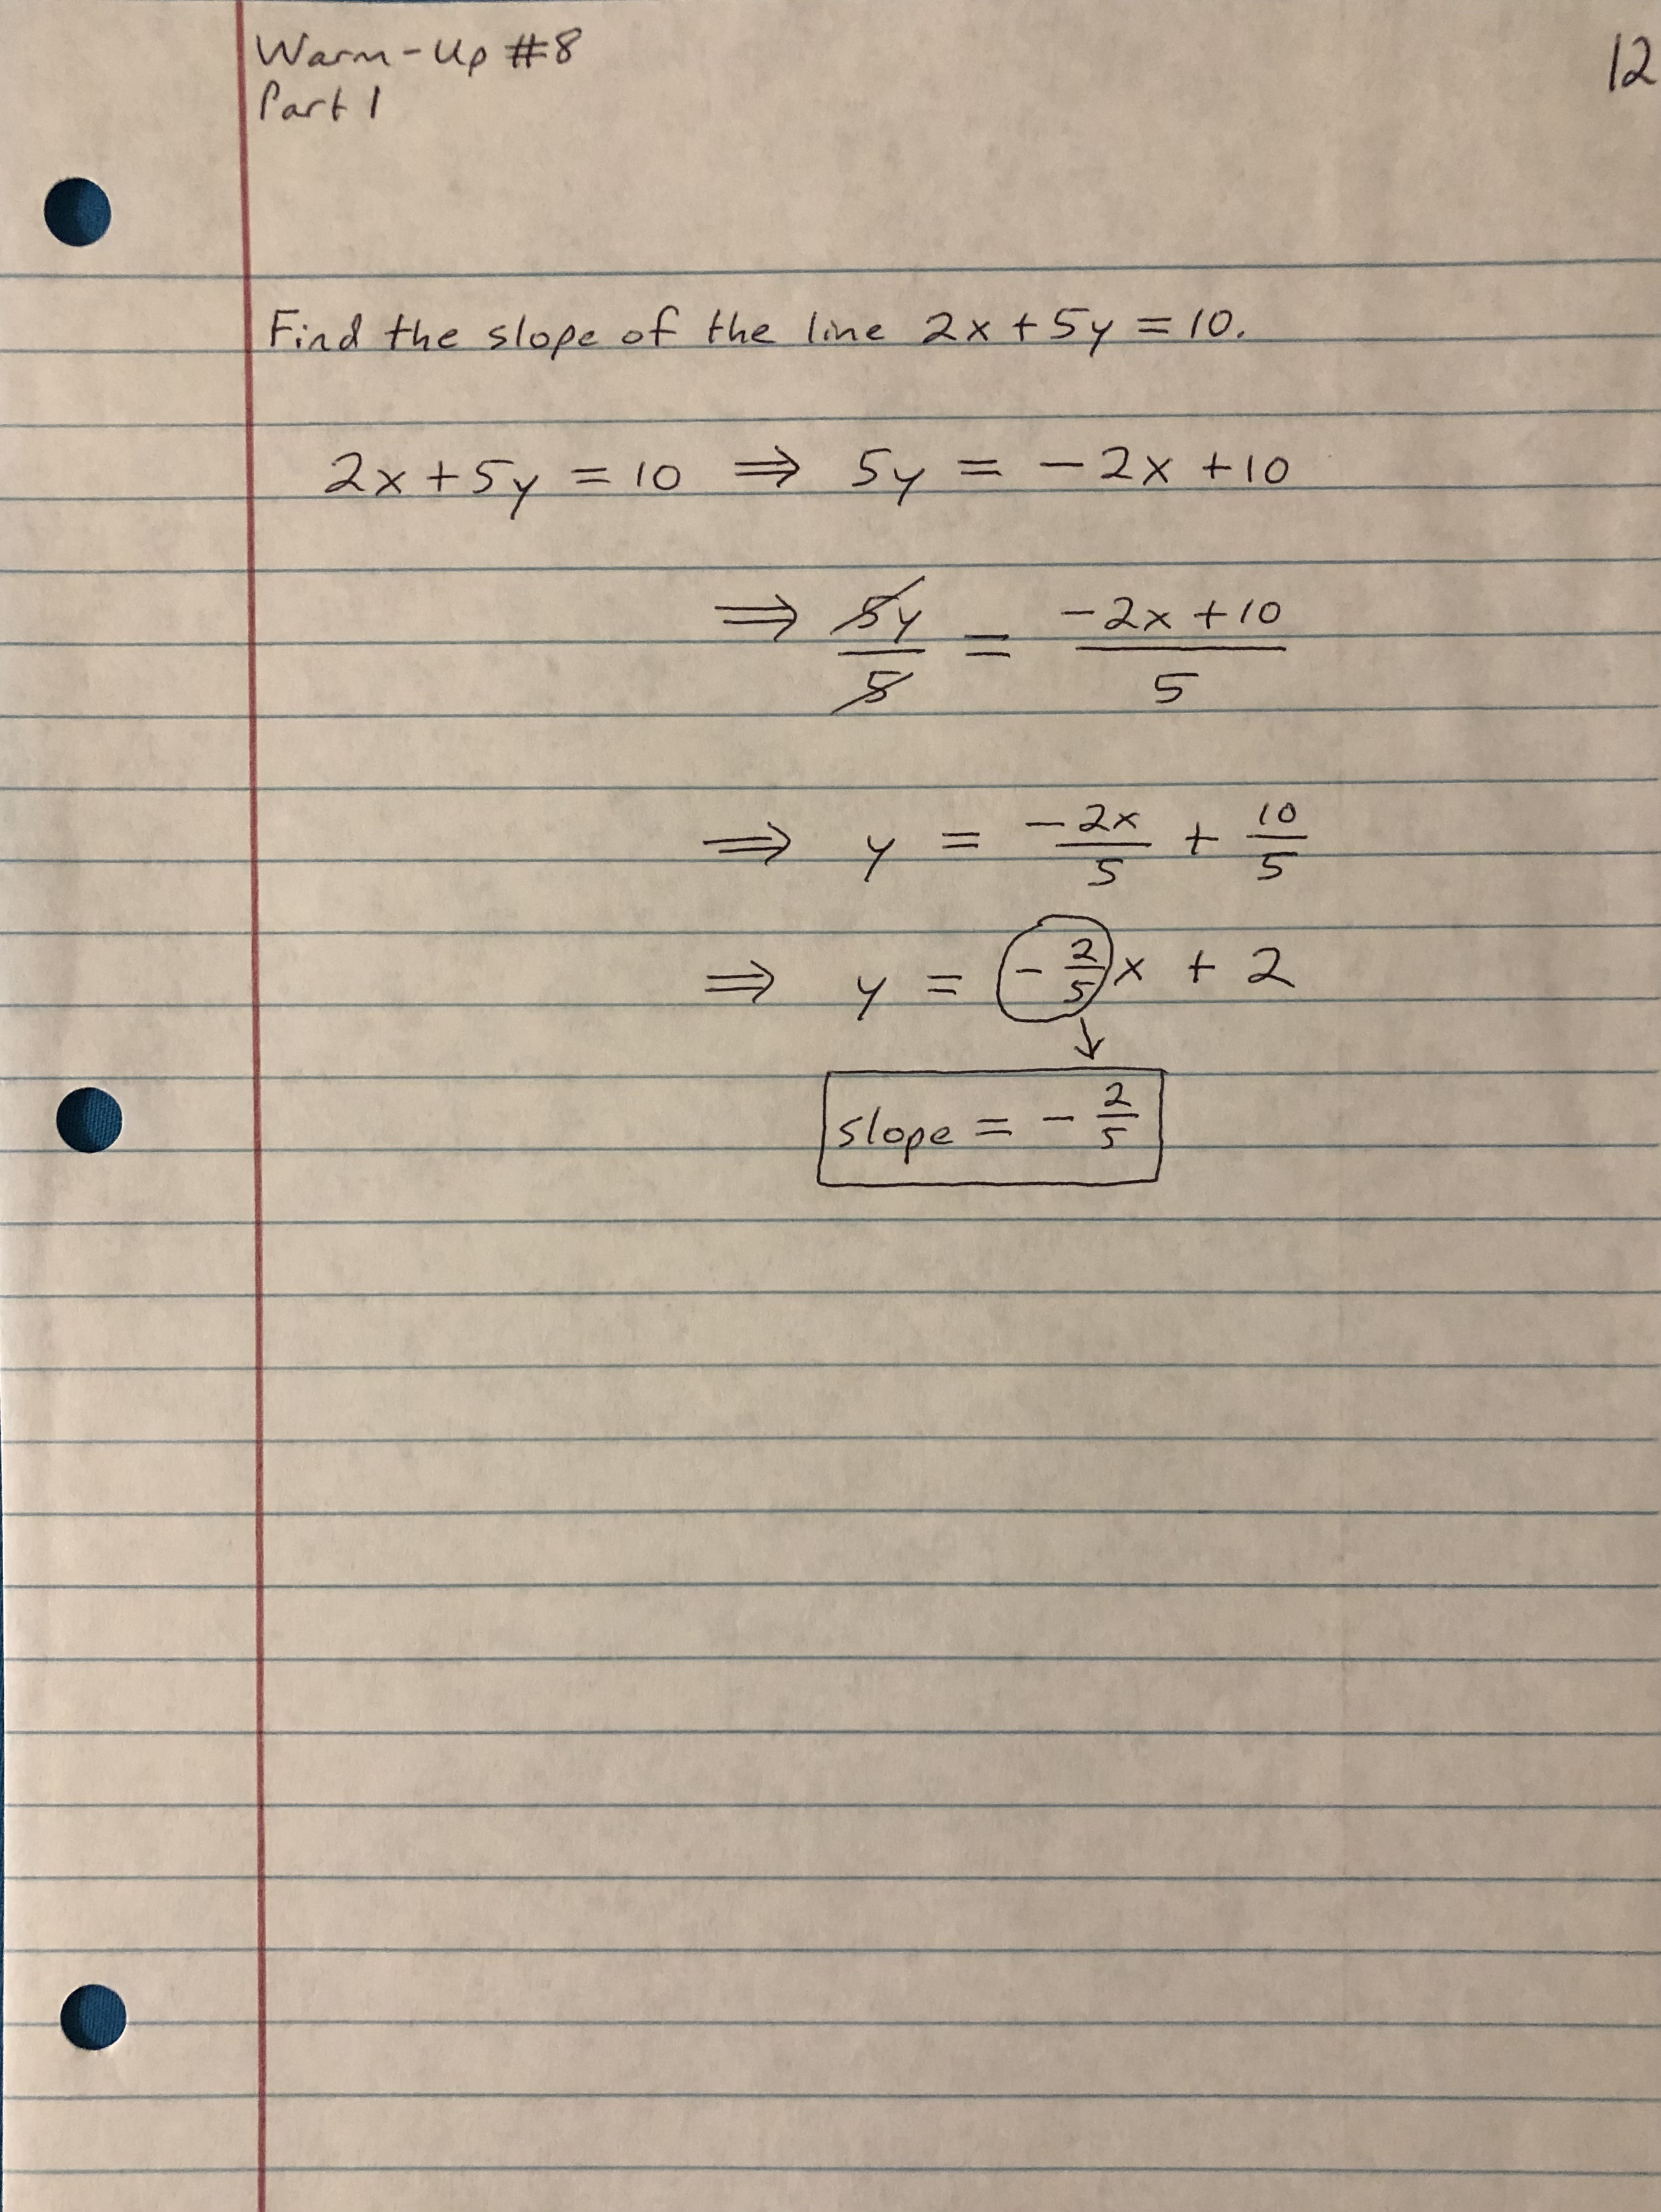 Warm-Up #8
Part 1
12
Find the slope of the line 2x+5y=10.
2x+5y = 10 ⟹ 5y = -2x +10
⟹ 5y/5 = (-2x+10)/5
⟹ y = -2x/5 + 10/5
⟹ y = -2/5 x + 2
↓
slope = - 2/5